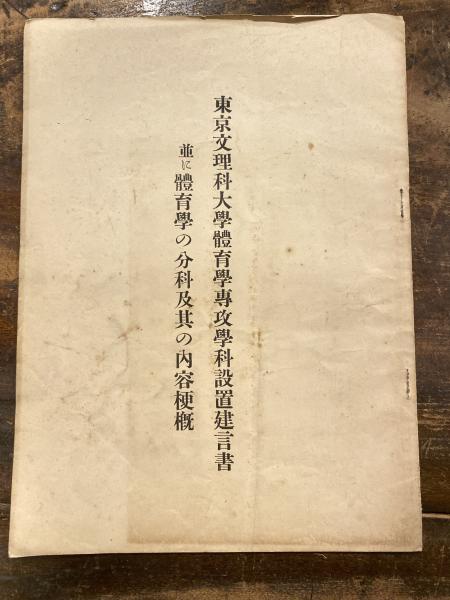 東京文理科大學體育學專攻學科設置建言書
並に體育學の分科及其の內容梗概